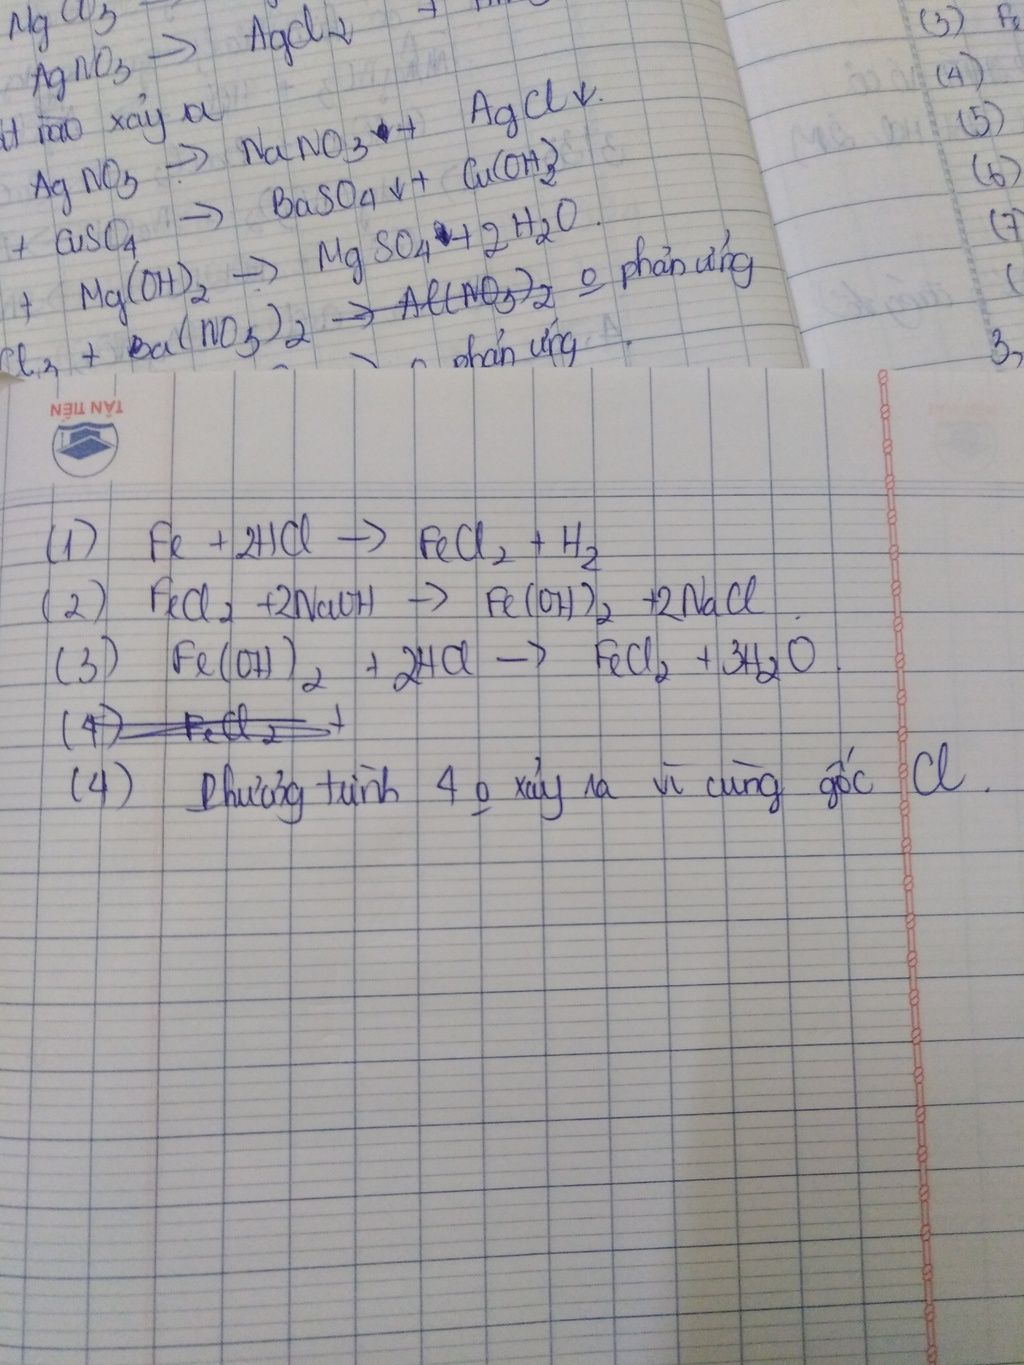 MgCl3
AgNO3 → AgCl↓ +
nào xảy ra
AgNO3 → NaNO3 + AgCl↓.
+ CuSO4 → BaSO4↓ + Cu(OH)2
+ Mg(OH)2 → MgSO4 + 2H2O.
Cl3 + Ba(NO3)2 → Al(NO3)2 o phản ứng
o phản ứng.
(3) Fe
(4)
(5)
(6)
(7
(
3,
TÂN TIẾN
(1) Fe + 2HCl → FeCl2 + H2
(2) FeCl2 + 2NaOH → Fe(OH)2 + 2NaCl.
(3) Fe(OH)2 + 2HCl → FeCl2 + 3H2O.
(4) FeCl2 +
(4) Phương trình 4 o xảy ra vì cùng gốc Cl.